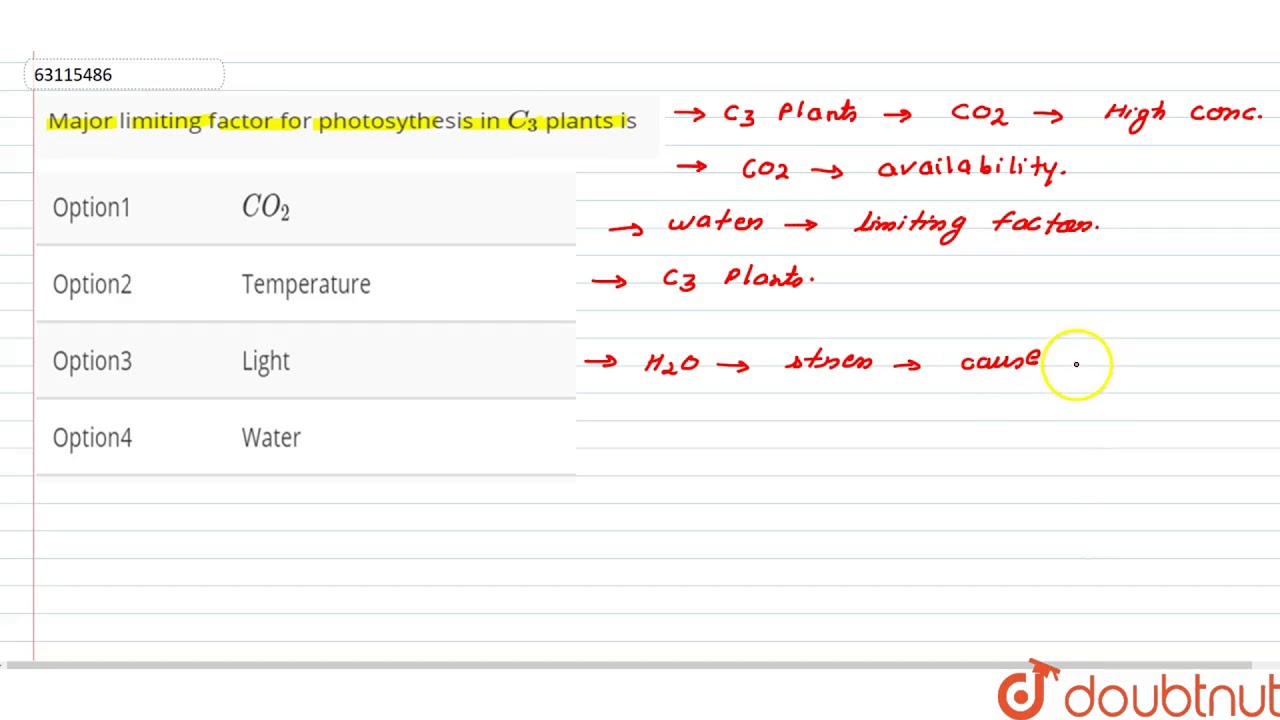 63115486
Major limiting factor for photosythesis in C₃ plants is
Option1 CO₂
Option2 Temperature
Option3 Light
Option4 Water
→ C3 Plants → CO2 → High conc.
→ CO2 → availability.
→ water → limiting factors.
→ C3 Plants.
→ H2O → stress → cause
doubtnut